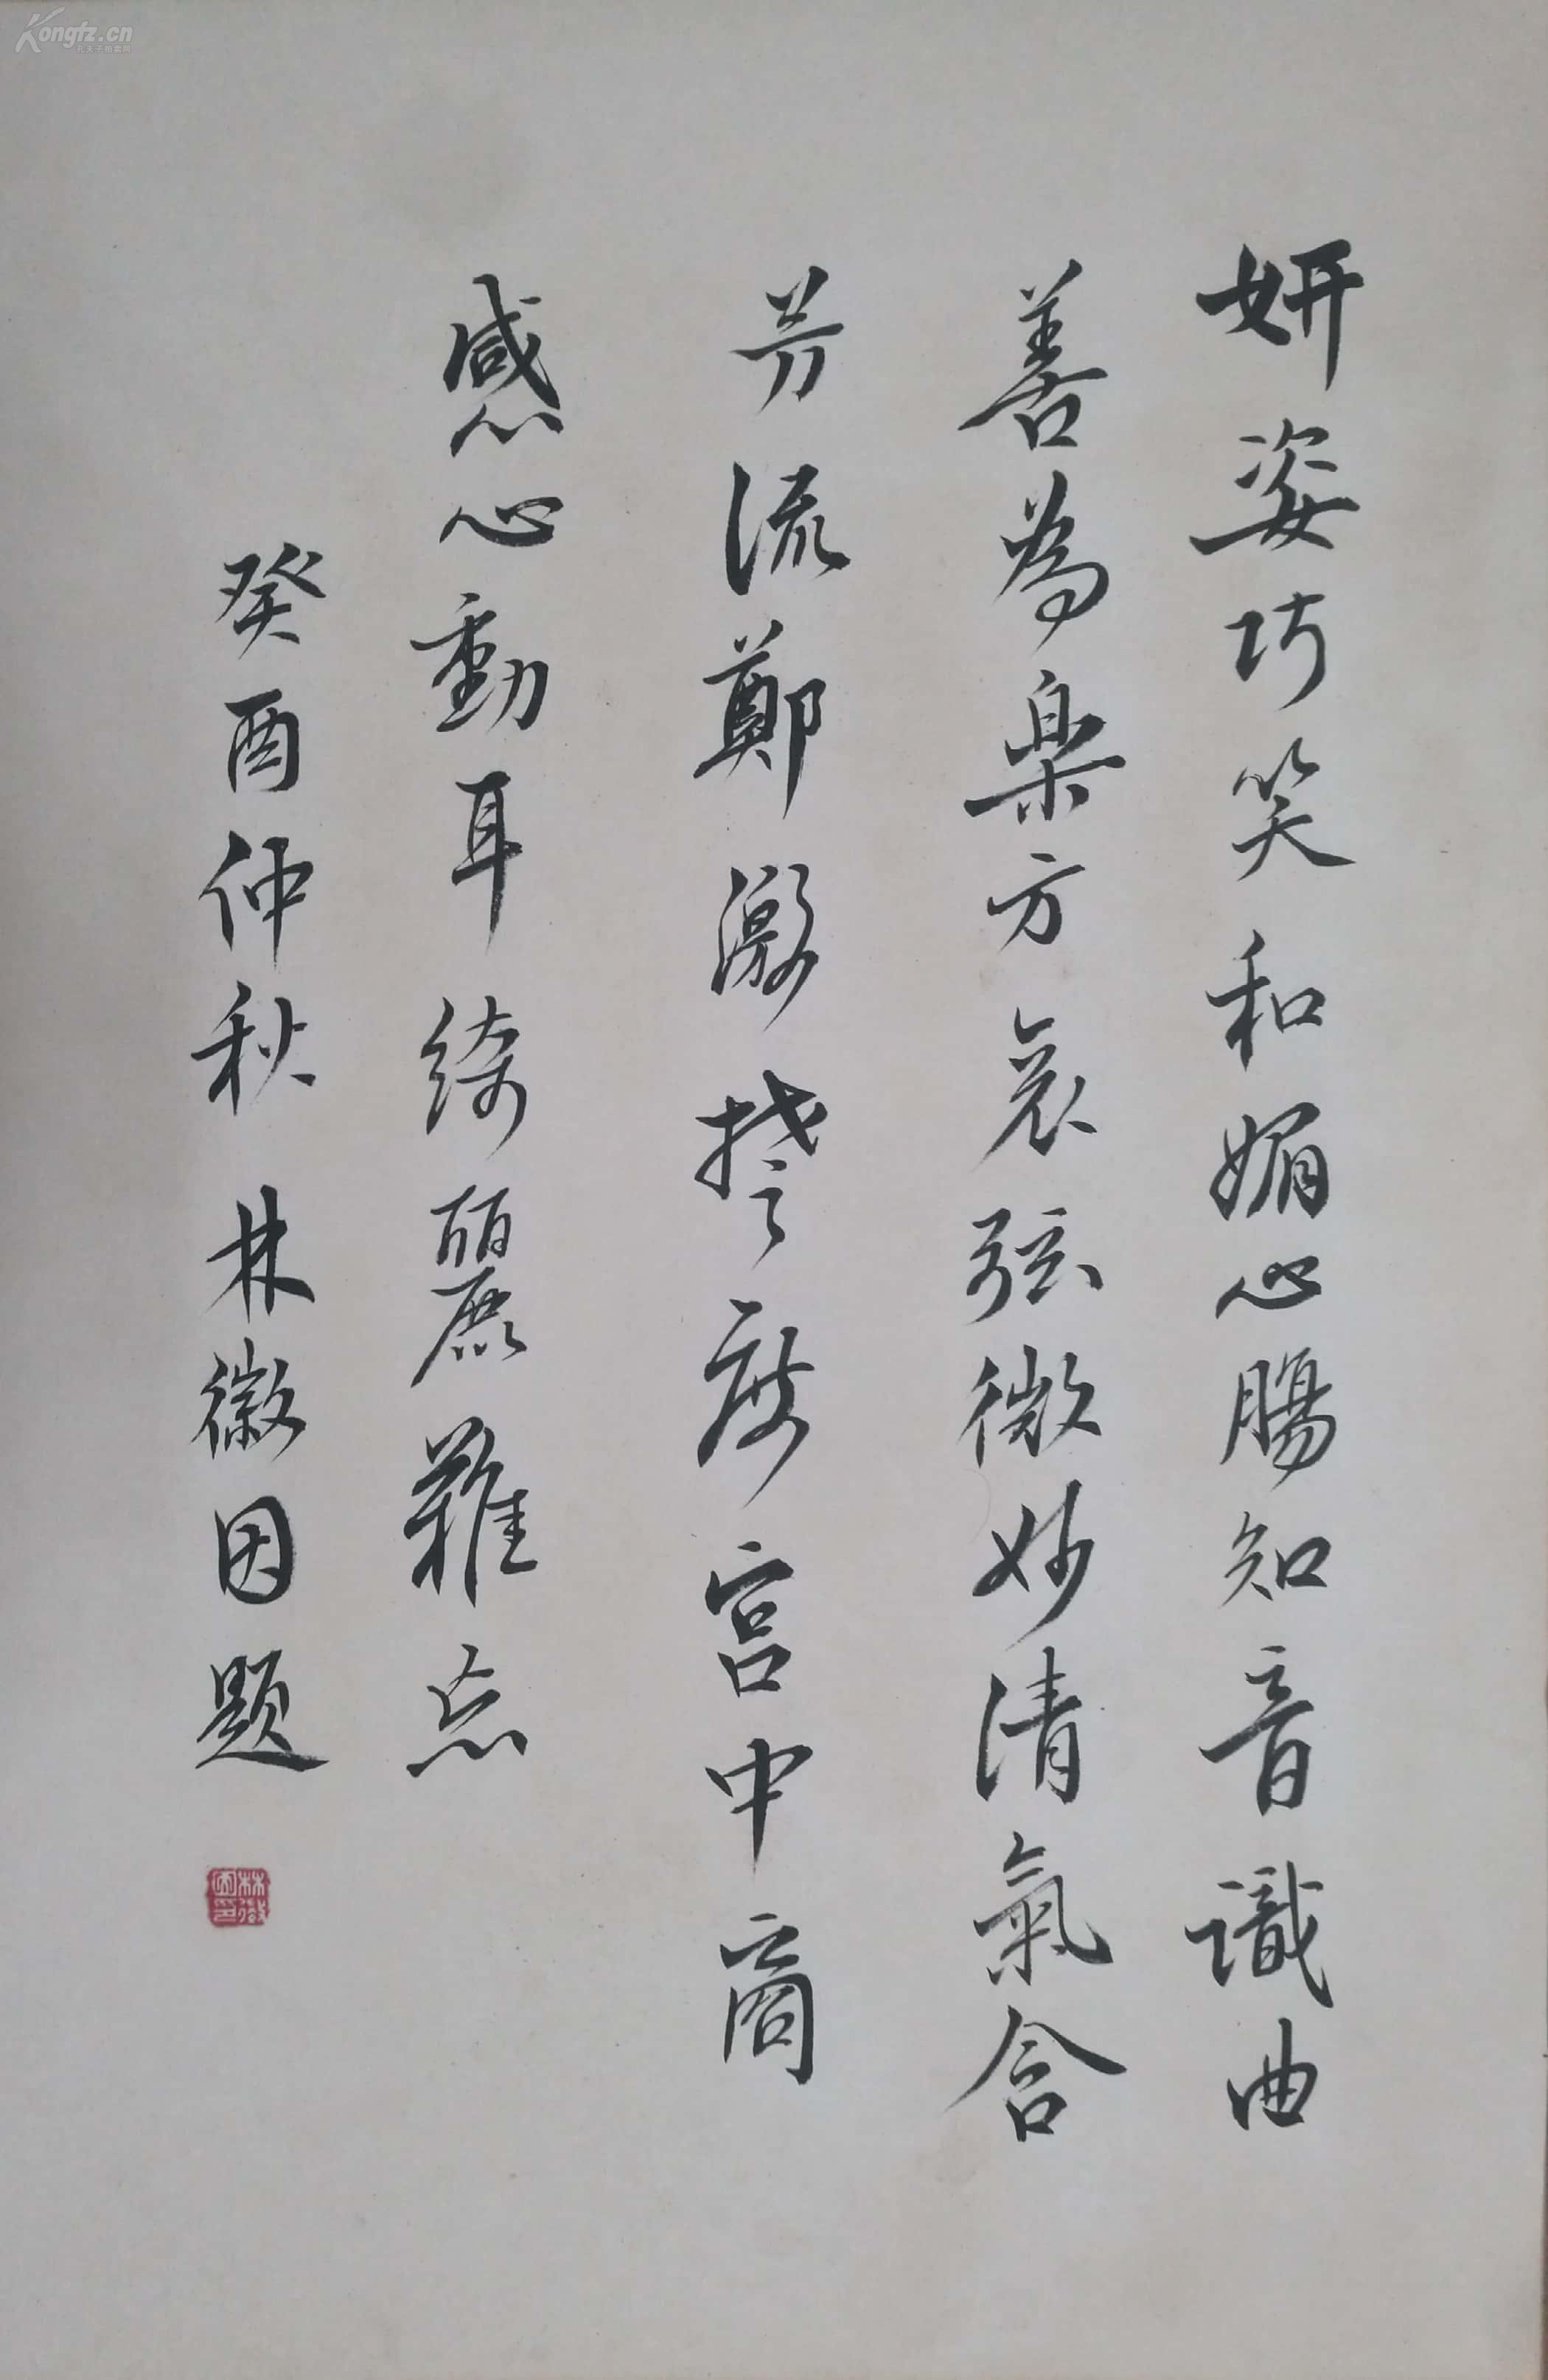 妍姿巧笑和媚心腸知音識曲
善為楽方哀弦微妙清氣含
芳流鄭激楚度宮中商
感心動耳綺麗難忘
癸酉仲秋 林徽因題
林徽因印
Kongfz.cn
孔夫子拍卖网